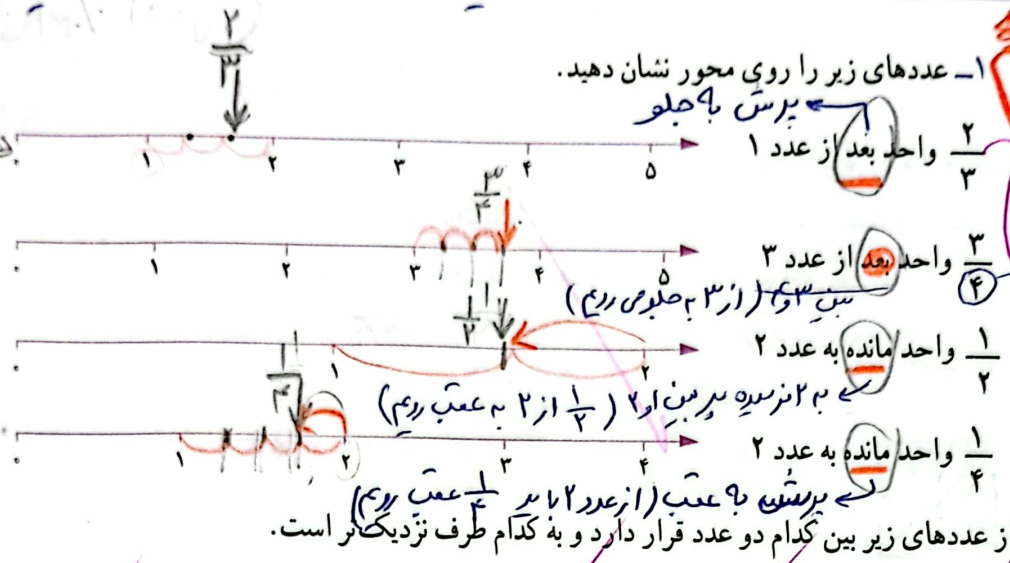 ۱ـ عددهای زیر را روی محور نشان دهید.
پرش به جلو
۲/۳ واحد بعد از عدد ۱
۲/۳
۰ ۱ ۲ ۳ ۴ ۵
۳/۴ واحد بعد از عدد ۳
۳/۴
۰ ۱ ۲ ۳ ۴ ۵
بین ۳ و ۴ (از ۳ به جلو می رویم)
۱/۲ واحد مانده به عدد ۲
۱/۲
۰ ۱ ۲
به ۲ نرسیده پس بین ۱ و ۲ (۱/۲ از ۲ به عقب رویم)
۱/۴ واحد مانده به عدد ۲
۱/۴
۰ ۱ ۲ ۳ ۴
به عقب (از عدد ۲ باید ۱/۴ عقب رویم)
ز عددهای زیر بین کدام دو عدد قرار دارد و به کدام طرف نزدیک‌تر است.